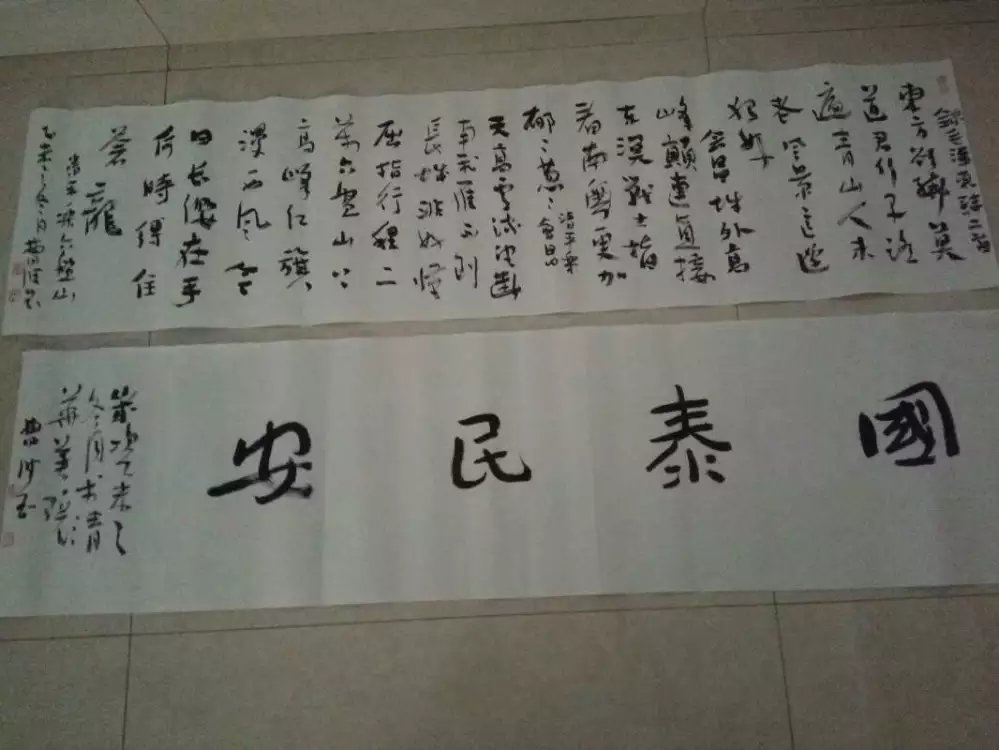 錄毛澤東詞二首
東方欲曉莫
道君行早踏
遍青山人未
老風景這邊
獨好
會昌城外高
峰顛連直接
東溟戰士指
看南粵更加
鬱鬱蔥蔥
清平樂 會昌
天高雲淡望斷
南飛雁不到
長城非好漢
屈指行程二
萬六盤山上
高峰紅旗
漫西風今
日長纓在手
何時縛住
蒼龍
清平樂六盤山
乙未之冬月
國泰民安
歲次乙未之
冬月於青